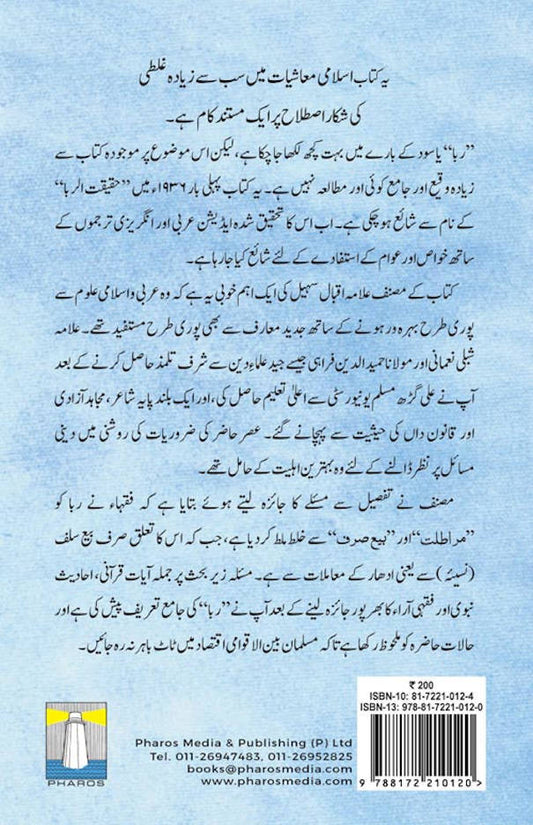 یہ کتاب اسلامی معاشیات میں سب سے زیادہ غلطی
کی شکار اصطلاح پر ایک مستند کام ہے۔
”ربا“ یا سود کے بارے میں بہت کچھ لکھا جا چکا ہے، لیکن اس موضوع پر موجودہ کتاب سے
زیادہ وقیع اور جامع کوئی اور مطالعہ نہیں ہے۔ یہ کتاب پہلی بار ۱۹۳۶ء میں ”حقیقت الربا“
کے نام سے شائع ہو چکی ہے۔ اب اس کا تحقیق شدہ ایڈیشن عربی اور انگریزی ترجموں کے
ساتھ خواص اور عوام کے استفادے کے لئے شائع کیا جا رہا ہے۔
کتاب کے مصنف علامہ اقبال سہیل کی ایک اہم خوبی یہ ہے کہ وہ عربی و اسلامی علوم سے
پوری طرح بہرہ ور ہونے کے ساتھ جدید معارف سے بھی پوری طرح مستفید تھے۔ علامہ
شبلی نعمانی اور مولانا حمید الدین فراہی جیسے جید علماء دین سے شرف تلمذ حاصل کرنے کے بعد
آپ نے علی گڑھ مسلم یونیورسٹی سے اعلیٰ تعلیم حاصل کی، اور ایک بلند پایہ شاعر، مجاہد آزادی
اور قانون داں کی حیثیت سے پہچانے گئے۔ عصر حاضر کی ضروریات کی روشنی میں دینی
مسائل پر نظر ڈالنے کے لئے وہ بہترین اہلیت کے حامل تھے۔
مصنف نے تفصیل سے مسئلے کا جائزہ لیتے ہوئے بتایا ہے کہ فقہاء نے ربا کو
”مراطلت“ اور ”بیع صرف“ سے خلط ملط کر دیا ہے، جب کہ اس کا تعلق صرف بیع سلف
(نسیئہ) سے یعنی ادھار کے معاملات سے ہے۔ مسئلہ زیر بحث پر جملہ آیات قرآنی، احادیث
نبوی اور فقہی آراء کا بھرپور جائزہ لینے کے بعد آپ نے ”ربا“ کی جامع تعریف پیش کی ہے اور
حالات حاضرہ کو ملحوظ رکھا ہے تاکہ مسلمان بین الاقوامی اقتصاد میں ٹاٹ باہر نہ رہ جائیں۔
₹ 200
ISBN-10: 81-7221-012-4
ISBN-13: 978-81-7221-012-0
9 788172 210120>
PHAROS
Pharos Media & Publishing (P) Ltd
Tel. 011-26947483, 011-26952825
books@pharosmedia.com
www.pharosmedia.com